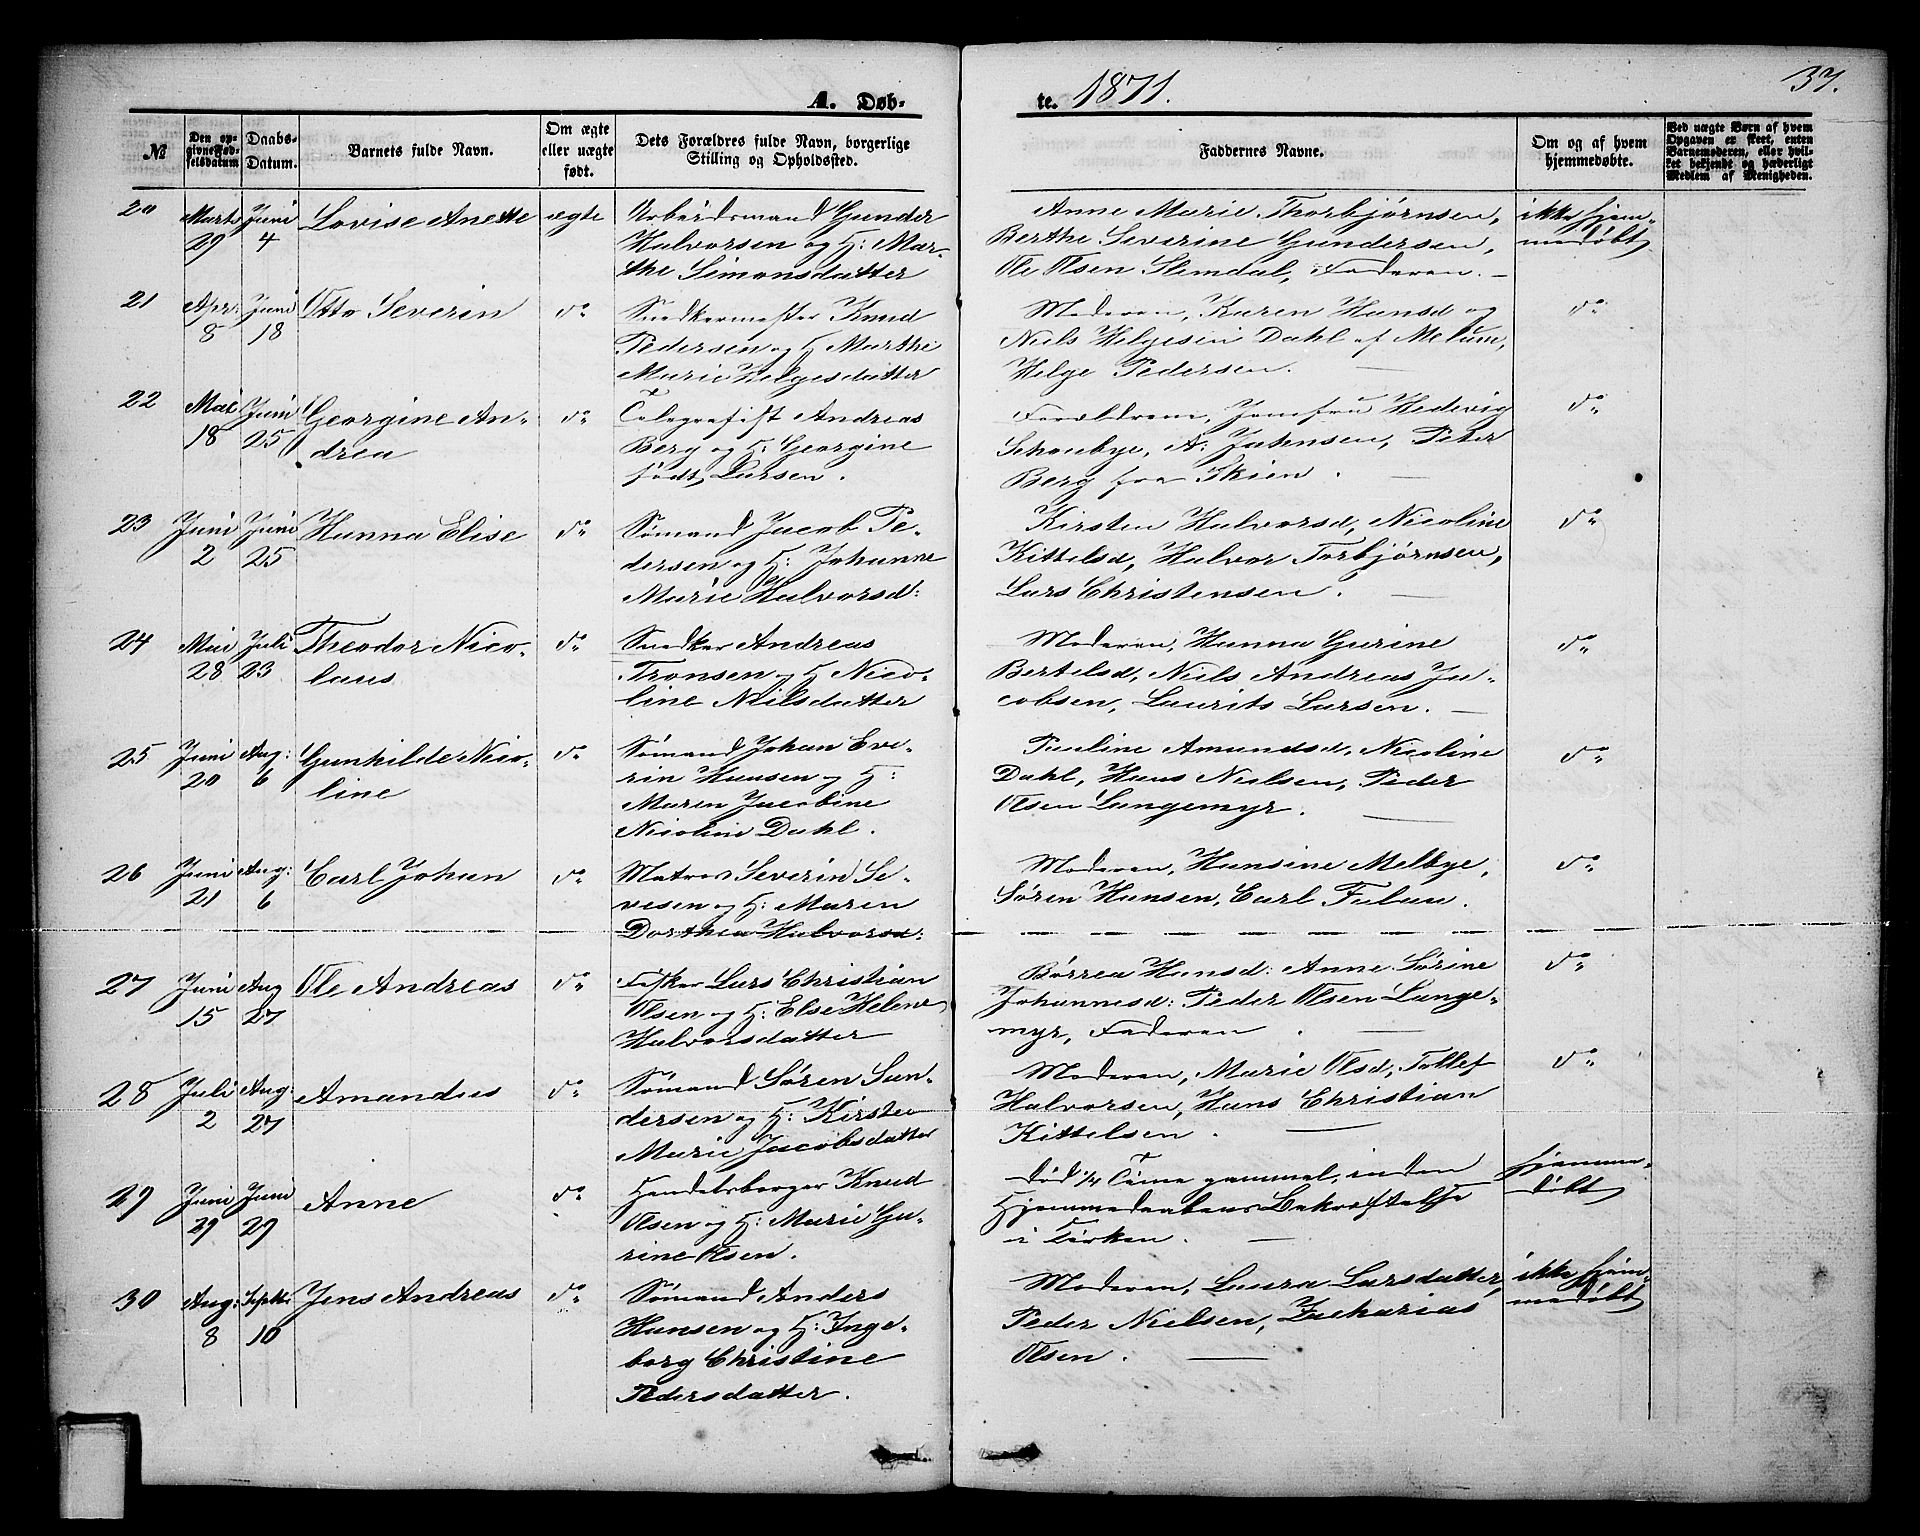 A. Døb-
te. 1871.
37.
№
Den op-
givne Fød-
selsdatum
Daabs-
Datum.
Barnets fulde Navn.
Om ægte
eller uægte
født.
Dets Forældres fulde Navn, borgerlige
Stilling og Opholdssted.
Faddernes Navne.
Om og af hvem
hjemmedøbte.
Ved uægte Børn af hvem
Opgaven er skeet, enten
Barnemoderen, eller hvil-
ket bekjendt og hæderligt
Medlem af Menigheden.
20 Marts 29 Juni 4 Lovise Anette ægte
Arbeidsmand Gunder
Halvorsen og H: Mar-
the Simonsdatter
Anne Marie Thorbjørnsen,
Berthe Severine Gundersen,
Ole Olsen Slemdal, Faderen.
ikke hjem-
medøbt
21 Apr: 8 Juni 18 Otto Severin do
Snedkermester Knud
Pedersen og H Marthe
Marie Helgesdatter
Moderen, Karen Hansd og
Niels Helgesen Dahl af Melum,
Helge Pedersen.
do
22 Mai 18 Juni 25 Georgine An-
drea
do
Telegrafist Andreas
Berg og H: Georgine
født Larsen.
Forældrene, Jomfru Hedevig
Schoubye, A. Jahnsen, Peter
Berg fra Skien.
do
23 Juni 2 Juni 25 Hanna Elise do
Sømand Jacob Pe-
dersen og H: Johanne
Marie Halvorsd:
Kirsten Halvorsd, Nicoline
Kittelsd, Halvor Torbjørnsen,
Lars Christensen.
do
24 Mai 28 Juli 23 Theodor Nico-
laus
do
Snedker Andreas
Tronsen og H Nico-
line Nielsdatter
Moderen, Hanna Gurine
Bertelsd, Niels Andreas Ja-
cobsen, Laurits Larsen.
do
25 Juni 20 Aug: 6 Gunhilde Nico-
line
do
Sømand Johan Eve-
rin Hansen og H:
Maren Jacobine
Nicoline Dahl.
Pauline Amundsd, Nicoline
Dahl, Hans Nielsen, Peder
Olsen Langemyr.
do
26 Juni 21 Aug: 6 Carl Johan do
Matros Severin Se-
vesen og H: Maren
Dorthea Halvorsd:
Moderen, Hansine Melbye,
Søren Hansen, Carl
do
27 Juni 15 Aug 27 Ole Andreas do
Fisker Lars Christian
Olsen og H: Else Helene
Halvorsdatter
Børrea Hansd: Anne Sørine
Johannesd: Peder Olsen Lange-
myr, Faderen.
do
28 Juli 2 Aug: 27 Amandus do
Sømand Søren San-
dersen og H: Kirsten
Marie Jacobsdatter
Moderen, Marie Olsd, Tollef
Halvorsen, Hans Christian
Kittelsen.
do
29 Juni 29 Juni 29 Anne do
Handelsborger Knud
Olsen og H: Marie Gu-
rine Olsen.
Død 1/4 Time gammel, inden
Hjemmedaabens Bekræftelse
i Kirken.
hjemme-
døbt
30 Aug: 8 Septbr 10 Jens Andreas do
Sømand Anders
Hansen og H: Inge-
borg Christine
Pedersdatter.
Moderen, Laura Larsdatter,
Peder Nielsen, Zacharias
Olsen.
ikke hjem-
medøbt